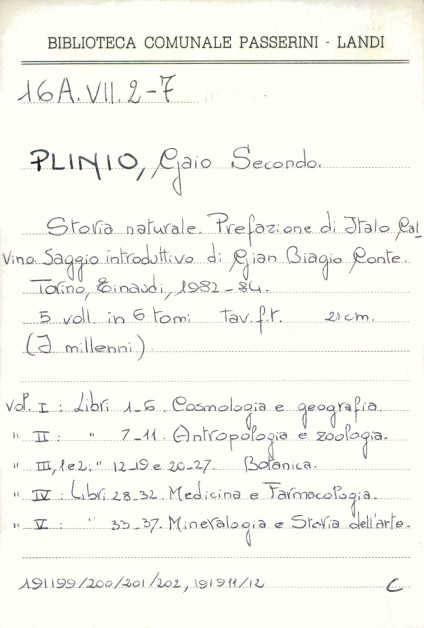 BIBLIOTECA COMUNALE PASSERINI - LANDI
16A.VII.2-7
PLINIO, Gaio Secondo.
Storia naturale. Prefazione di Italo Cal
vino. Saggio introduttivo di Gian Biagio Conte.
Torino, Einaudi, 1982-84.
5 voll. in 6 tomi Tav.f.t. 21cm.
(I millenni).
vol. I : Libri 1-6. Cosmologia e geografia.
" II : " 7-11. Antropologia e zoologia.
" III, 1e2: " 12-19 e 20-27. Botanica.
" IV : Libri 28-32. Medicina e Farmacologia.
" V : " 33-37. Mineralogia e Storia dell'arte.
191199/200/201/202, 191911/12 C